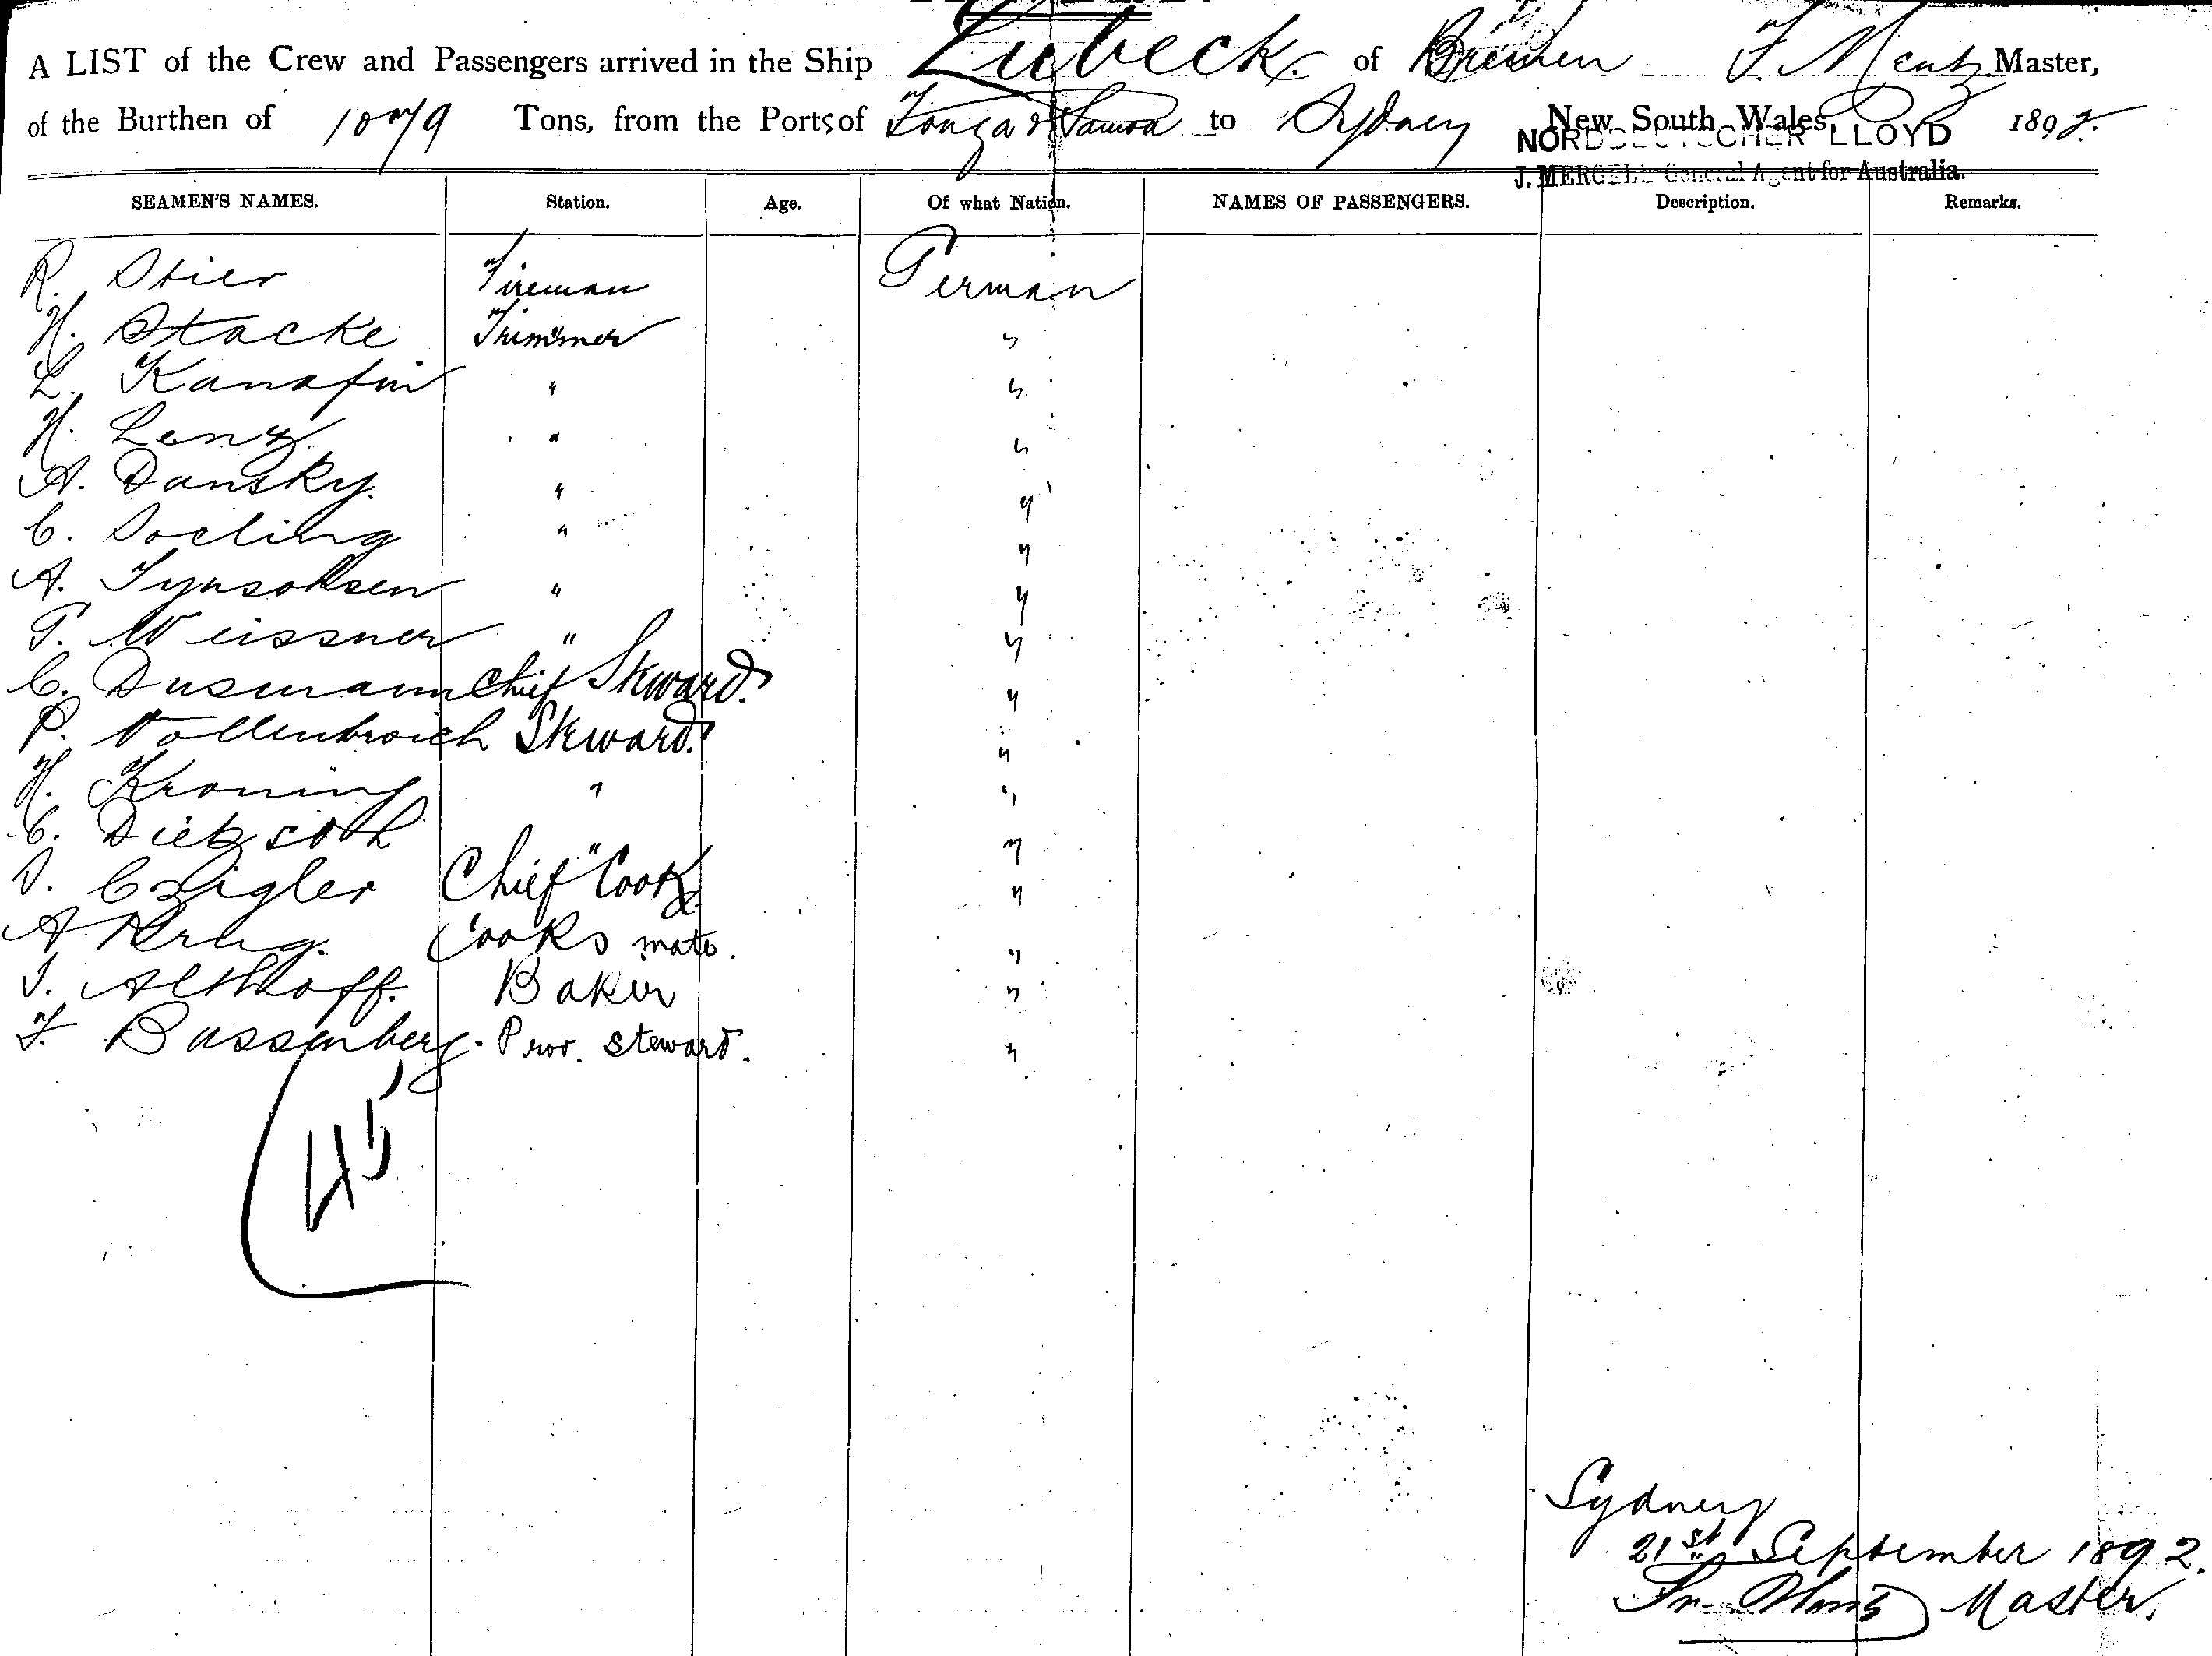 A LIST of the Crew and Passengers arrived in the Ship Lubeck. of Bremen F. Mentz Master,
of the Burthen of Tons, from the Ports of Tonga & Samoa to Sydney New South Wales 1892.
NORDDEUTSCHER LLOYD
J. MERGELL General Agent for Australia.
SEAMEN'S NAMES. Station. Age. Of what Nation. NAMES OF PASSENGERS. Description. Remarks.
R. Stier Fireman German
H. Stacke Trimmer "
L. " "
H. Lenz " "
A. Dansky. " "
C. " "
A. " "
G. Weissner " "
C. Dusmann Chief Steward. "
P. Vollenbroich Steward. "
H. Kroning " "
C. " "
Czigler Chief Cook "
A Krug. Cooks mate. "
J. Althoff. Baker "
F. Bassenberg. Prov. steward. "
45
Sydney
21st September 1892.
Fr. Mentz Master.